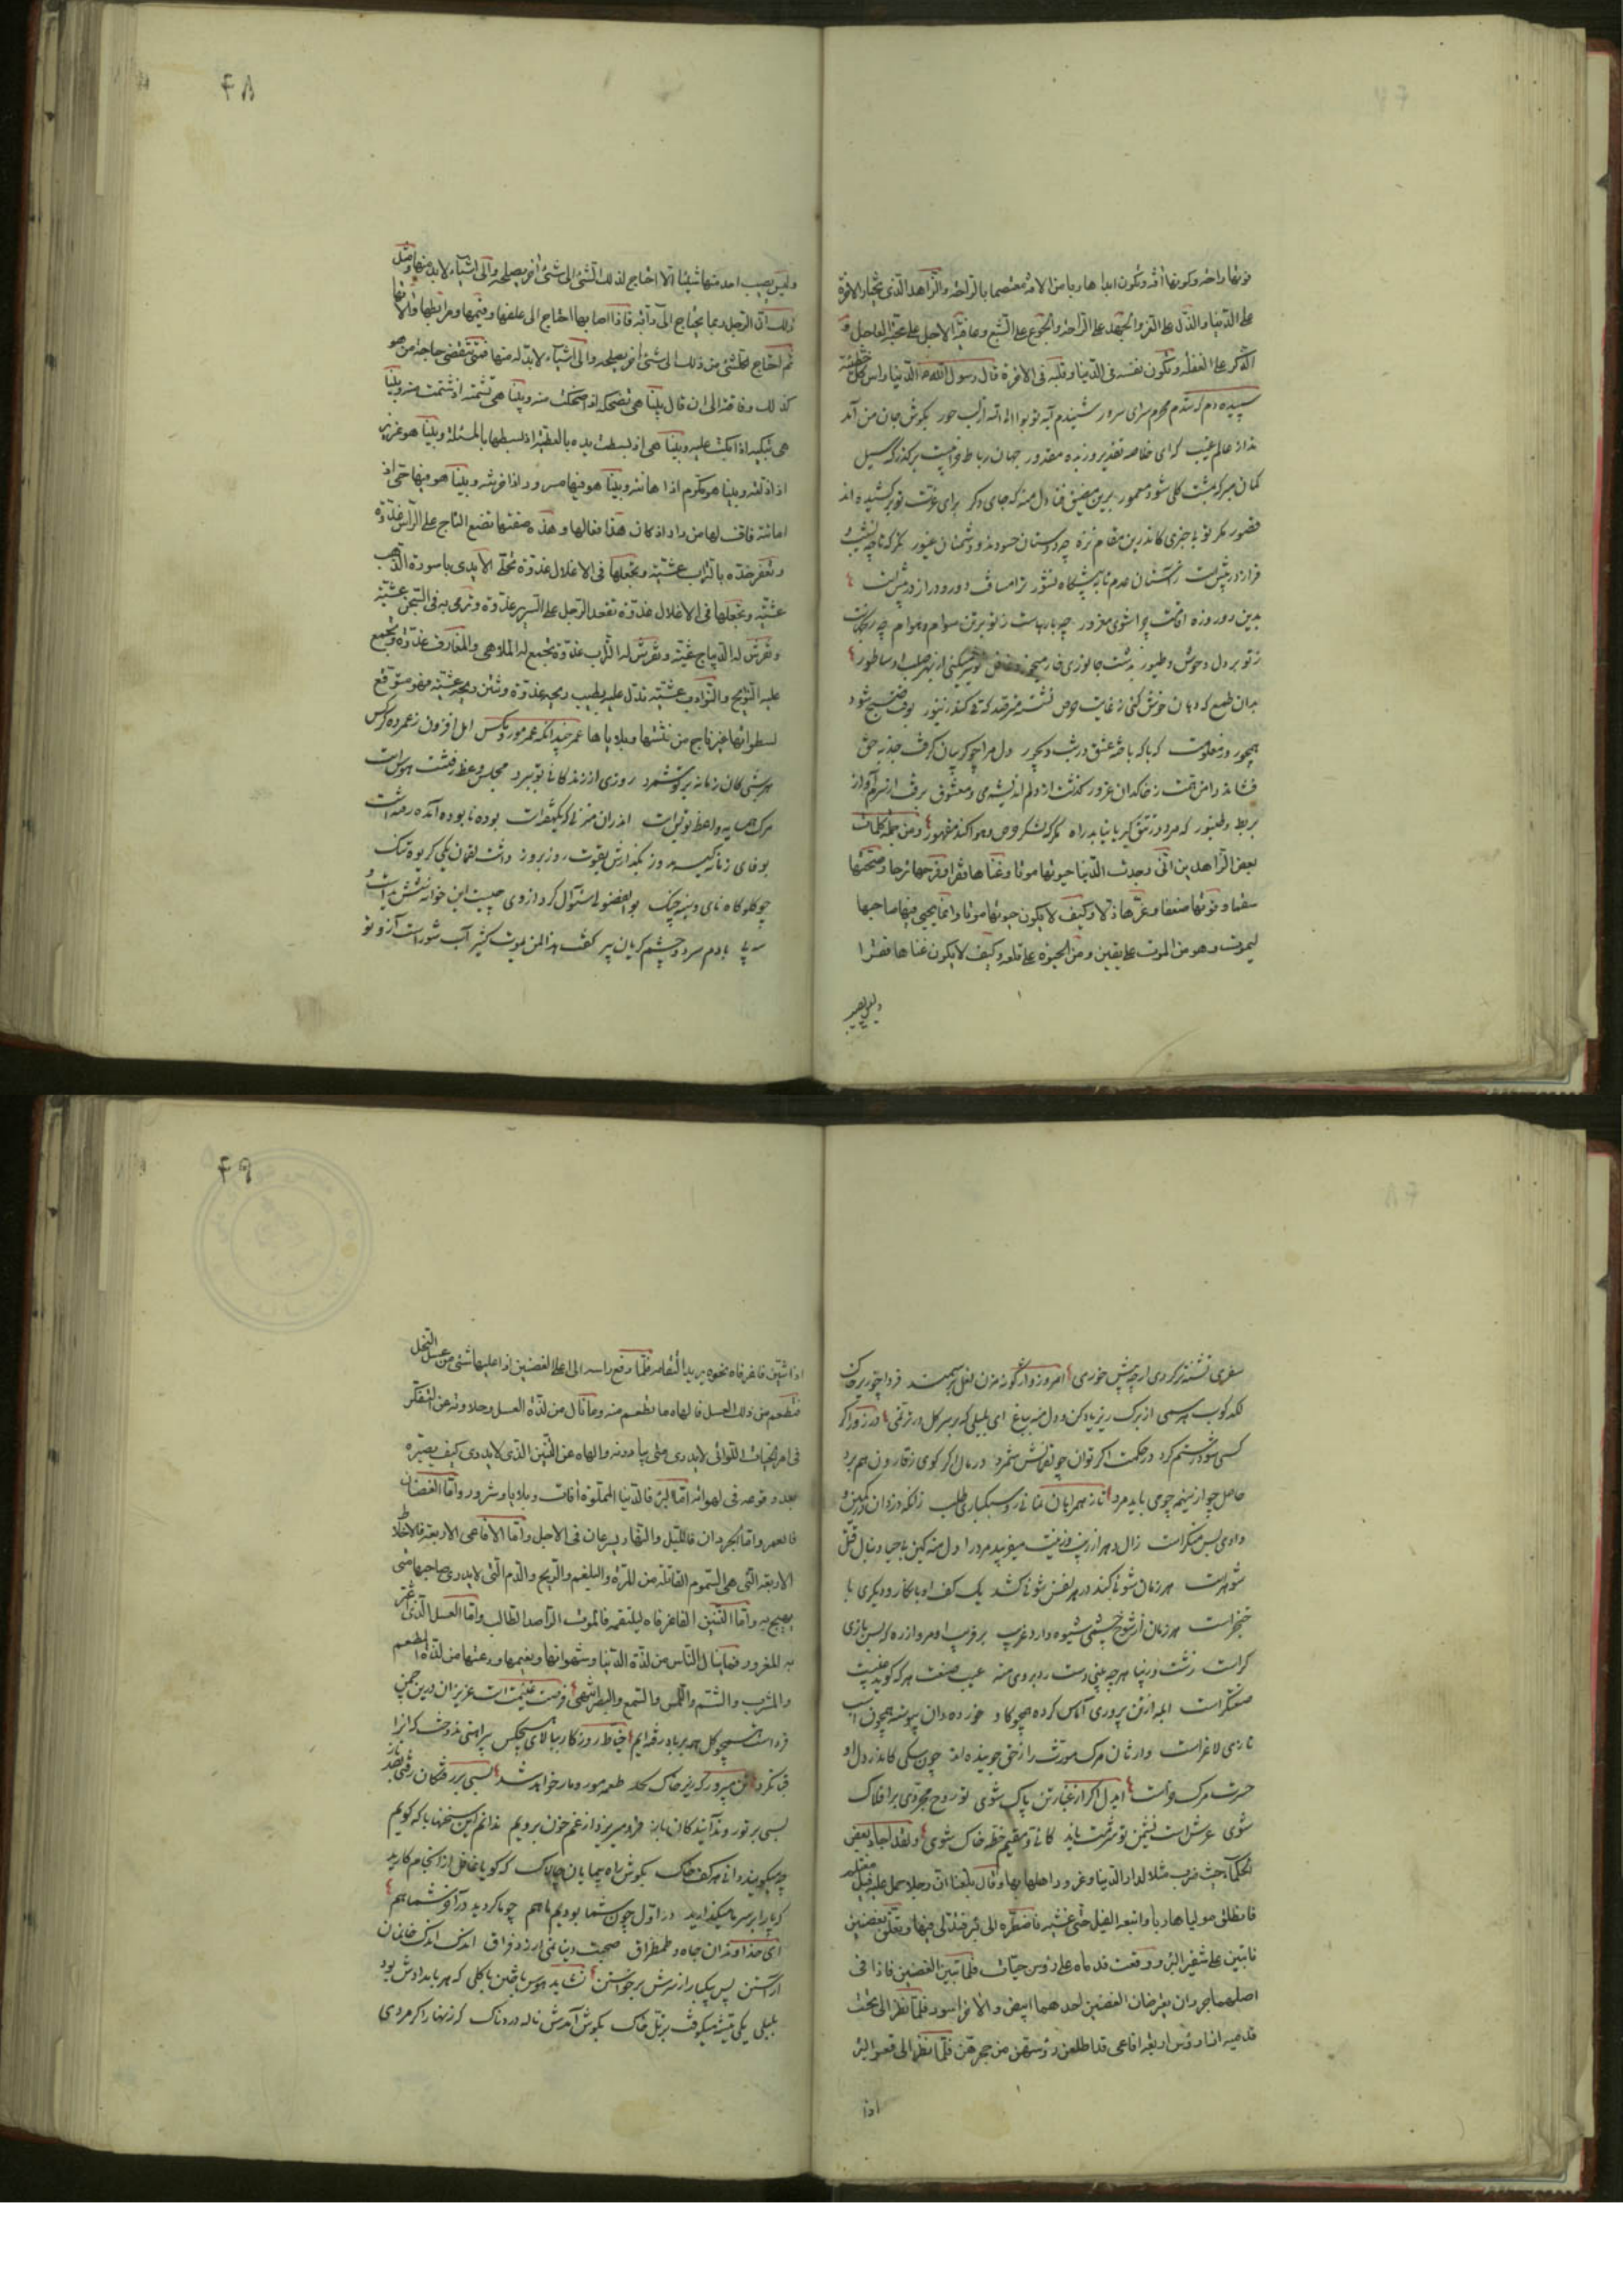 فوتها راحة وكونها آفة وتكون ابدا هاربا من الافة معتصما بالراحة والزاهد الذی يختار الاخرة
علی الدنيا والذل علی العز والجهد علی الراحة والجوع علی الشبع وعافية الاجل علی محبة العاجل و
الذكر علی الغفلة وتكون نفسه فی الدنيا وقلبه فی الاخرة قال رسول الله الدنيا راس كل خطيئة
سپیده دم که شدم محرم سرای سرور شنیدم آیه توبوا الی الله از لب حور بکوش جان من آمد
ندا ز عالم غیب که ای خلاصه تقدیر و زبده مقدور جهان رباط خرابیست بر گذرگه سیل
گمان مبر که بیشت گلی شود معمور برین مضیق فنا دل منه که جای دگر برای عزت تو بر کشیده اند
قصور مگر تو بی‌خبری کاندرین مقام ترا چه دوستان حسودند و دشمنان غیور بگر که تا چه نشیب و
فراز در پیش است ز آستان عدم تا به پیشگاه نشور ترا مسافت دور و دراز در پیش است
بدین دو روزه اقامت چرا شوی مغرور چه بارهاست ز تو بر تن سوام و هوام چه
ز تو بر دل وحوش و طیور بدشت جانوری خار میخورد
بدان طمع که دهان خوش کنی ز غایت حرص نشسته مترصد که قی کند زنبور بوقت صبح شود
همچو روز معلومت که با که باخته عشق در شب دیجور دل مرا چو گریبان گرفت جذبه حق
فشاند دامن همت ز خاکدان غرور گذشت از دلم اندیشه می و معشوق برفت از سرم آواز
بربط و طنبور که مرد ره نتق كبريا نيابد راه مگر که لشکر حرص و هوا کند مقهور ومن جملة كلمات
بعض الزاهدين انی وجدت الدنيا حيوتها موتا وغناها فقرا وفرحها ترحا وصحتها
سقما وقوتها ضعفا وعزها ذلا وكيف لا يكون حيوتها موتا وانما يحيی فيها صاحبها
ليموت وهو من الموت علی يقين ومن الحيوة علی قلعة وكيف لا يكون غناها فقرا
وليس يصيب
۴۸
وليس يصيب احد منها شيئا الا احتاج لذلك الشئ الی شئ آخر يصلحه والی اشياء لا بد منها ومثل
ذلك ان الرجل ربما يحتاج الی دآبة فاذا اصابها احتاج الی علفها وقيمها ومرابطها وآلاتها
ثم احتاج لكل شئ من ذلك الی شئ آخر يصلحه والی اشياء لا بد له منها فمتی تنقضی حاجة من هو
كذلك وفاقته الی ان قال بينا هی تضحكه اذ اضحكت منه وبينا هی تشتمه اذ شتمت منه وبينا
هی تبكيه اذ ابكت عليه وبينا هی اذ بسطت يده بالعطية اذ بسطتها بالمسئلة وبينا هو عزيز
اذ اذلته وبينا هو مكرم اذا هانته وبينا هو فيها مسرور اذ احزنته وبينا هو فيها حی اذ
اماتته فاف لها من دار اذ كان هذا فعالها وهذه صفتها تضع التاج علی الراس غدوة
وتعفر خده بالتراب عشية وتجعلها فی الاغلال غدوة تحلی الايدی باسورة الذهب
عشية وتجعلها فی الاغلال غدوة تقعد الرجل علی السرير غدوة وترمی به فی السجن عشية
وتفرش له الديباج عشية وتفرش له التراب غدوة وتجمع له الملاهی والمعازف غدوة وتجمع
عليه النوايح والنوادب عشية
لسطواتها غير ناج من فتنتها وبلاياها عمر چندانکه عمر مور و مگس امل افزون ز عمر ده کرکس
هر شبی کان زمانه بر تو شمرد روزی از زندگانی تو ببرد مجلس وعظ رفتنت هوس است
مرگ همسایه واعظ تو بس است اندران منزلی که یکهفته است بوده نابوده آمده رفته است
بوفای زمانه کیسه مدوز بگذارش بقوت روز بروز داشت لقمان یکی کریچه تنگ
چو گلوگاه نای و سینه چنگ بوالفضولی سئوال کرد از وی چیست این خانه شش بدست و
سه پی بادم سرد و چشم گریان پیر گفت هذا لمن يموت كثير آب شور است آز و تو
سفری تشنه‌تر گردی ار چه بیش خوری امروز وارگونه مزن نعل بر سمند فردا چو زیر خاک
لگدکوب هر سمی از برگ ریز یاد کن و دل منه بباغ ای بلبلی که بر سر گل در ترنمی در زور اگر
کسی شود رستم گرد در حکمت اگر توان چو لقمانش شمرد در مال اگر گوی ز قارون هم برد
حاصل چو از نیم چو می باید مرد تا ز همراهان نمانی رو سبکباری طلب زانکه دزدان در کمین و
وادی بس منکر است زال دهر از زیب و زینت میفریبد مرد را دل منه کین بی حیا دنبال قتل
شوهر است هر زمان شوئی کند در هر نفس شوئی کشد یک کف او با نگار و دیگری با
خنجر است هر زمان از شوخ چشمی شیوه دارد غریب بر فریب او مرو از ره که بس بازی
گر است زشت و زیبا هر چه بینی دست رد بر وی منه عیب صنعت هر که گوید غیبت
صنعتگر است ابله از تن پروری آماس کرده همچو گاو خورده‌دان پیوسته همچون اسب
تازی لاغر است وارثان مرگ مورث را ز حق جوینده‌اند
حسرت مرگ خواست ایدل اگر از غبار تن پاک شوی تو روح مجردی بر افلاک
شوی عرش است نشیمن تو شرمت باید کائی و مقیم خطه خاک شوی ولقد اجاد بعض
الحكماء حيث ضرب مثلا لدار الدنيا وغرور اهلها بها وقال بلغنا ان رجلا حمل عليه فيل مغتلم
فانطلق موليا هاربا واتبعه الفيل حتی غشيه فاضطره الی بئر فتدلی فيها وتعلق بغصنين
نابتين علی شفير البئر ووقعت قدماه علی رؤس حيات فلما تبين الغصنين فاذا فی
اصلهما جردان يقرضان الغصنين احدهما ابيض والاخر اسود فلما نظر الی تحت
قدميه اذا رؤس اربعة افاعی قد اطلعن رؤسهن من جحرهن فلما نظر الی قعر البئر
اذا
۴۹
اذا تنين فاغر فاه نحوه يريد التقامه فلما رفع راسه الی اعلا الغصنين اذا عليها شئ من عسل النحل
فتطعم من ذلك العسل فالهاه ما تطعم منه وما نال من لذة العسل وحلاوته عن التفكر
فی امر الحيات اللواتی لا يدری متی يبادرنه والهاه عن التنين الذی لا يدری كيف يصيره
بعد وقوعه فی لهواته اما البئر فالدنيا المملوة آفات وبلايا وشرور واما الغصنان
فالعمر واما الجردان فالليل والنهار يسرعان فی الاجل واما الافاعی الاربعة فالاخلاط
الاربعة التی هی السموم القاتلة من المرة والبلغم والريح والدم التی لا يدری صاحبها متی
يهيج به واما التنين الفاغر فاه ليلتقمه فالموت الراصد الطالب واما العسل الذی غر
به المغرور فما ينال الناس من لذة الدنيا وشهواتها ونعيمها ودعتها من لذة المطعم
والمشرب والشم واللمس والسمع والبصر انتهی فرصت غنیمت است عزیزان درین چمن
فرداست همچو گل همه بر باد رفته‌ایم خیاط روزگار ببالای هیچکس پیراهنی ندوخت که آنرا
قبا نکرد تن مپرور که زیر خاک لحد طعمه مور و مار خواهد شد بسی بر رفتگان رفتی بصد ناز
بسی بر تو روند آیندگان باز
چه میگویند دانی هر کف خاک بگوش راه پیمایان چالاک که گویا غافل از انجام کارید
که پا را بر سر ما میگذارید در اول چون شما بودیم ما هم چو ما گردید در آخر شما هم
ای خداوندان جاه و طمطراق صحبت دنیا نمی ارزد فراق اندک اندک خانمان
آراستن پس بیکبار از سرش برخواستن
بلبلی یکی تیشه میکوفت بر تل خاک بگوش آمدش ناله دردناک که زنهار اگر مردی